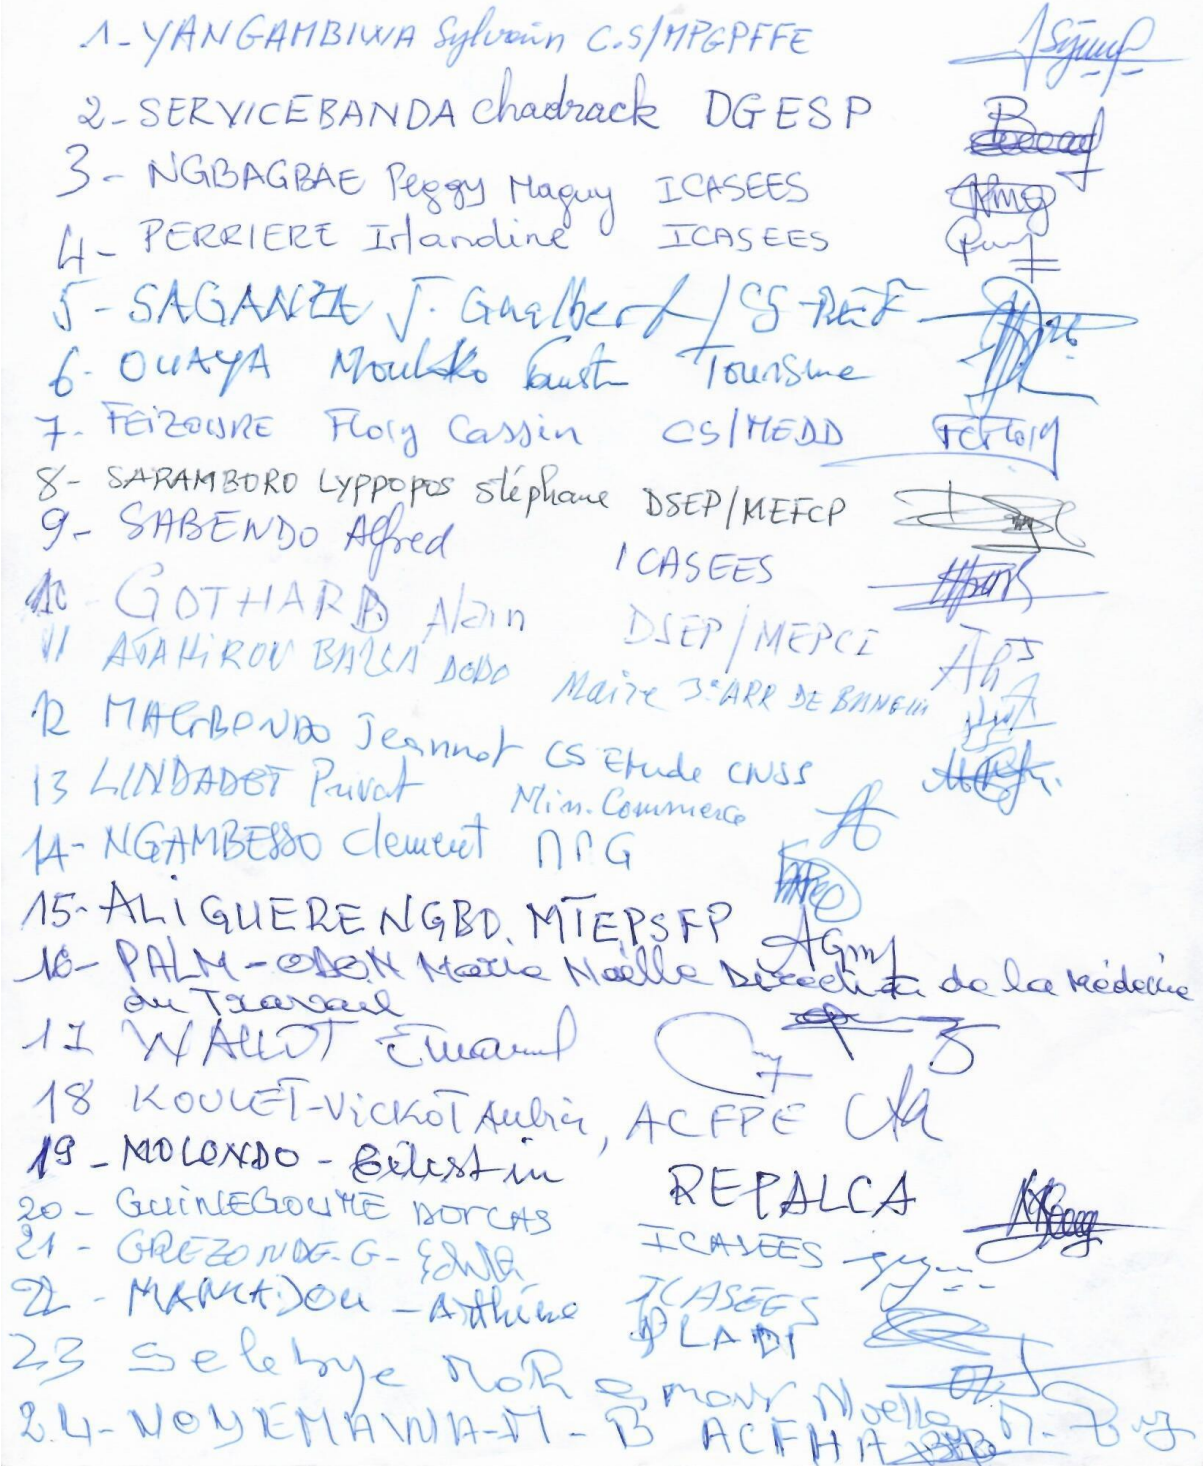 1- YANGAMBIWA Sylvain C.S/MPGPFFE
2- SERVICEBANDA Chadrack DGESP
3- NGBAGBAE Peggy Maguy ICASEES
4- PERRIERE Irlandine ICASEES
5- SAGANZA J. Gualbert / CS-
6- OUAYA Faustin Tourisme
7- FEIZOURE Flory Cassin CS/MEDD
8- SARAMBORO LYPPOPOS Stéphane DSEP/MEFCP
9- SABENDO Alfred ICASEES
10- GOTHARD Alain DSEP/MEPCI
11 ATAHIROU DODO Maire 3e ARR DE BANGUI
12 MAGBONDO Jeannot CS Etude CNSS
13 LINDADET Privat Min. Commerce
14- NGAMBESSO Clement
15- ALIGUERE NGBO. MTEPSFP
16- PALM-ODON Marie Noëlle Direction de la Médecine
du Travail
17 WALLOT
18 KOULET-VICKOT Aubin, ACFPE
19- MOLONDO - Célestin REPALCA
20- DORCAS ICASEES
21- GREZONDE-G- ICASEES
22- MAMADOU -
23 Selebye
24- NOYEMAWA-M-B